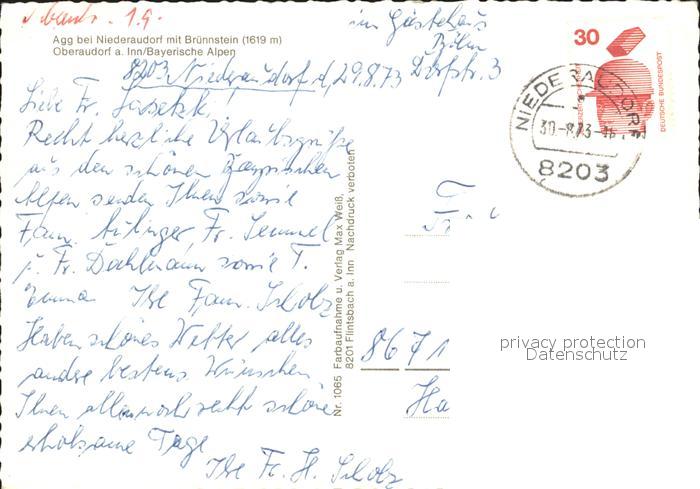 beantw. 1.9.
im Gästehaus
Agg bei Niederaudorf mit Brünnstein (1619 m)
Oberaudorf a. Inn/Bayerische Alpen
8203 Niederaudorf, d. 29.8.73 Dorfstr. 3
Liebe Fr.
Recht herzliche Urlaubsgrüße
aus den schönen Bayrischen
Alpen senden Ihnen sowie
Fam. Fr. Semmel
u. Fr. Dahlmann sowie T.
Emma Ihre Fam. Scholz
Haben schönes Wetter alles
andere bestens. Wünschen
Ihnen allen noch recht schöne
erholsame Tage
Ihre Fr. H. Scholz
Nr. 1065 Farbaufnahme u. Verlag Max Weiß,
8201 Flintsbach a. Inn Nachdruck verboten
30
DEUTSCHE BUNDESPOST
NIEDERAUDORF
30.-8.73-16
8203
Fr.
8671
Ha
privacy protection
Datenschutz